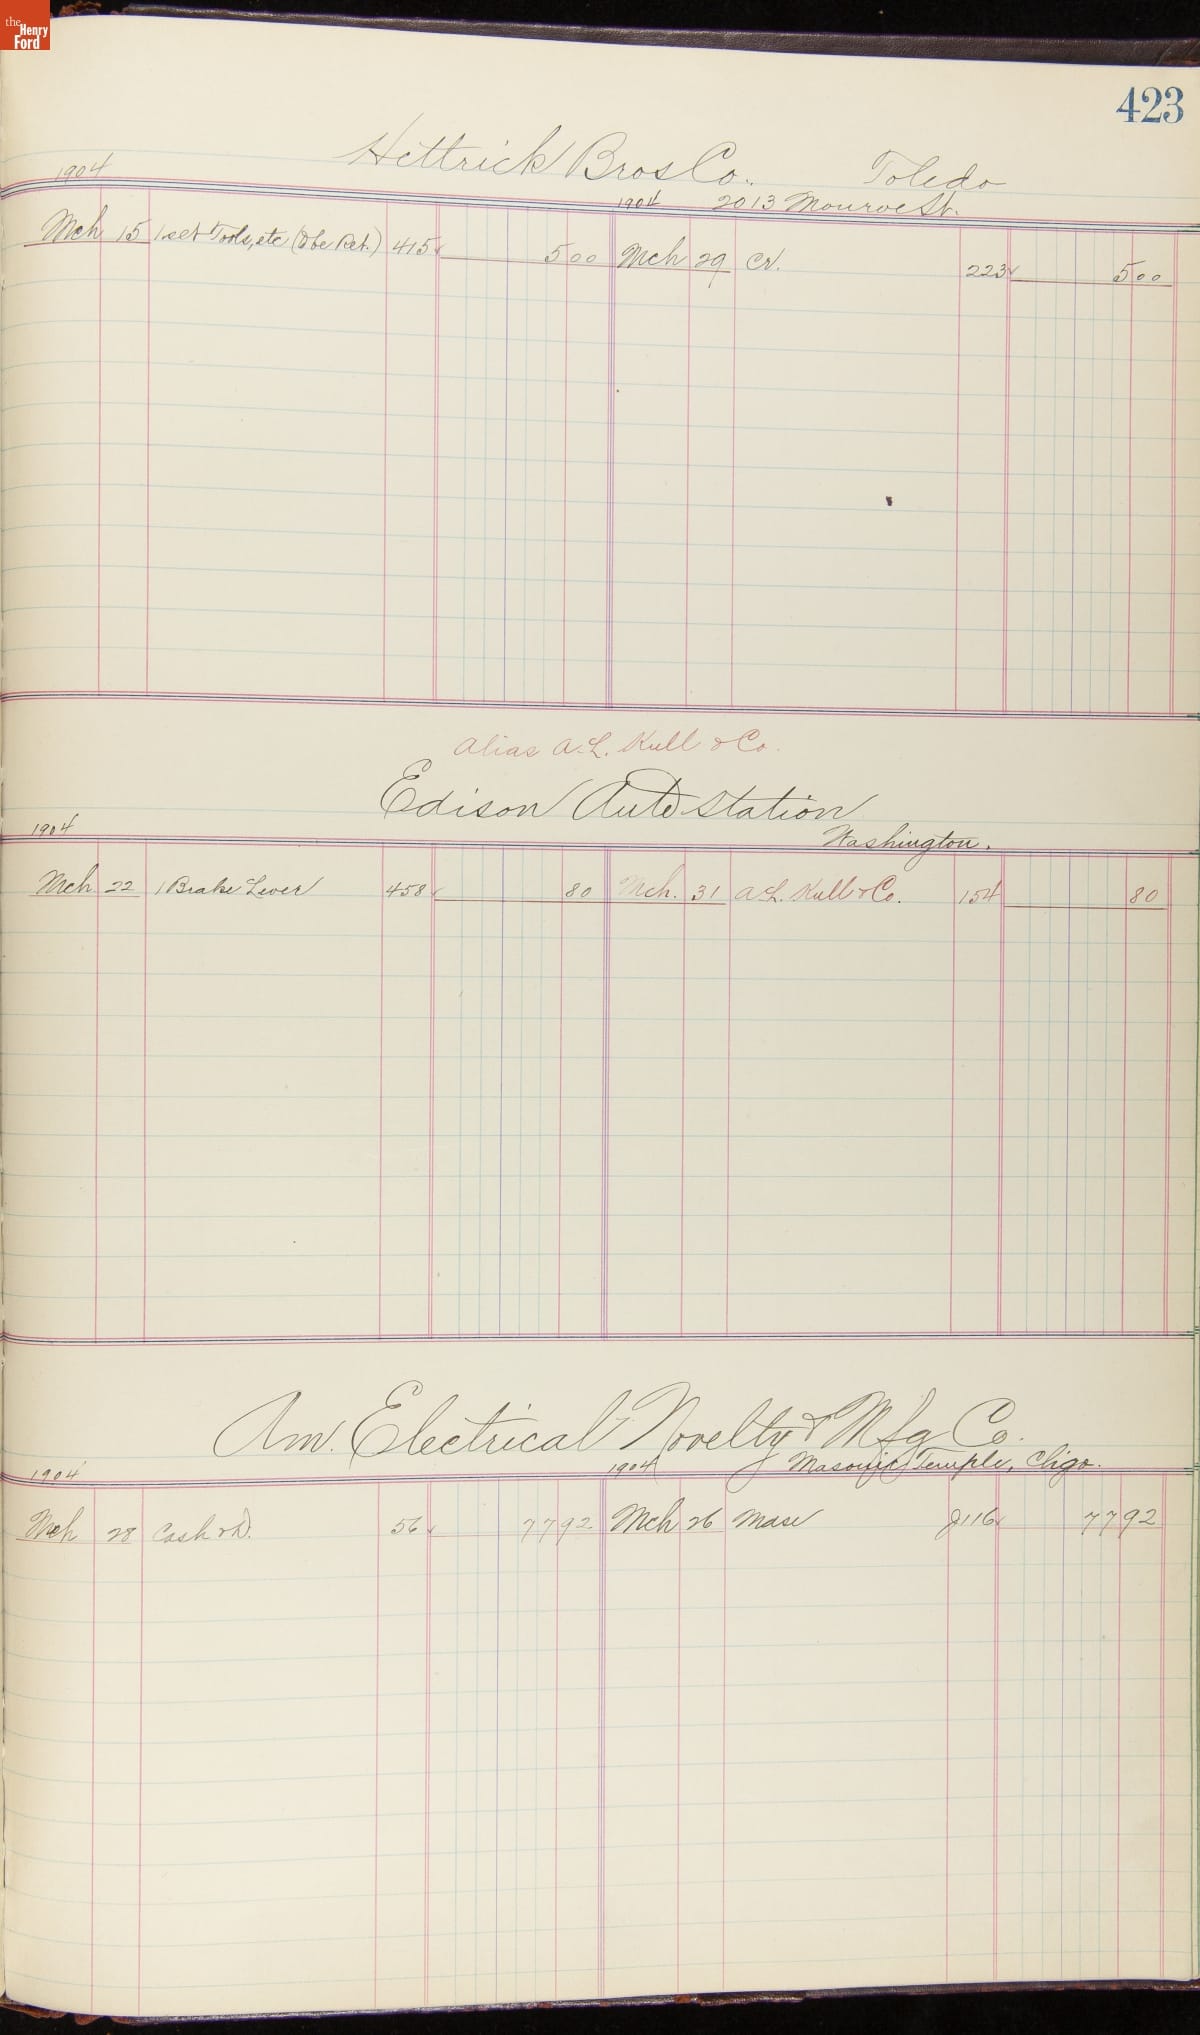 the Henry Ford
423
Hettrick Bros Co. Toledo
1904
1904 2013 Monroe St.
Mch 15 1 set Tools, etc (to be Ret.) 415 5 00 Mch 29 Cr. 223 5 00
Alias A. L. Kull & Co.
Edison Auto Station
1904 Washington.
Mch 22 1 Brake Lever 458 80 Mch. 31 A. L. Kull & Co. 154 80
Am. Electrical Novelty & Mfg Co.
1904 1904 Masonic Temple, Chgo.
Mch 28 Cash & D. 56 77 92 Mch 26 Mdse J116 77 92